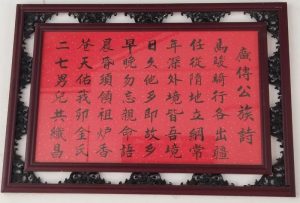 廣傳公族詩
萬峻騎行各出疆
任從隋地立綱常
年深外境皆吾境
日久他鄉即故鄉
早晚勿忘親命語
晨昏須顧祖炉香
苍天佑我卯金氏
二七男兒共熾昌